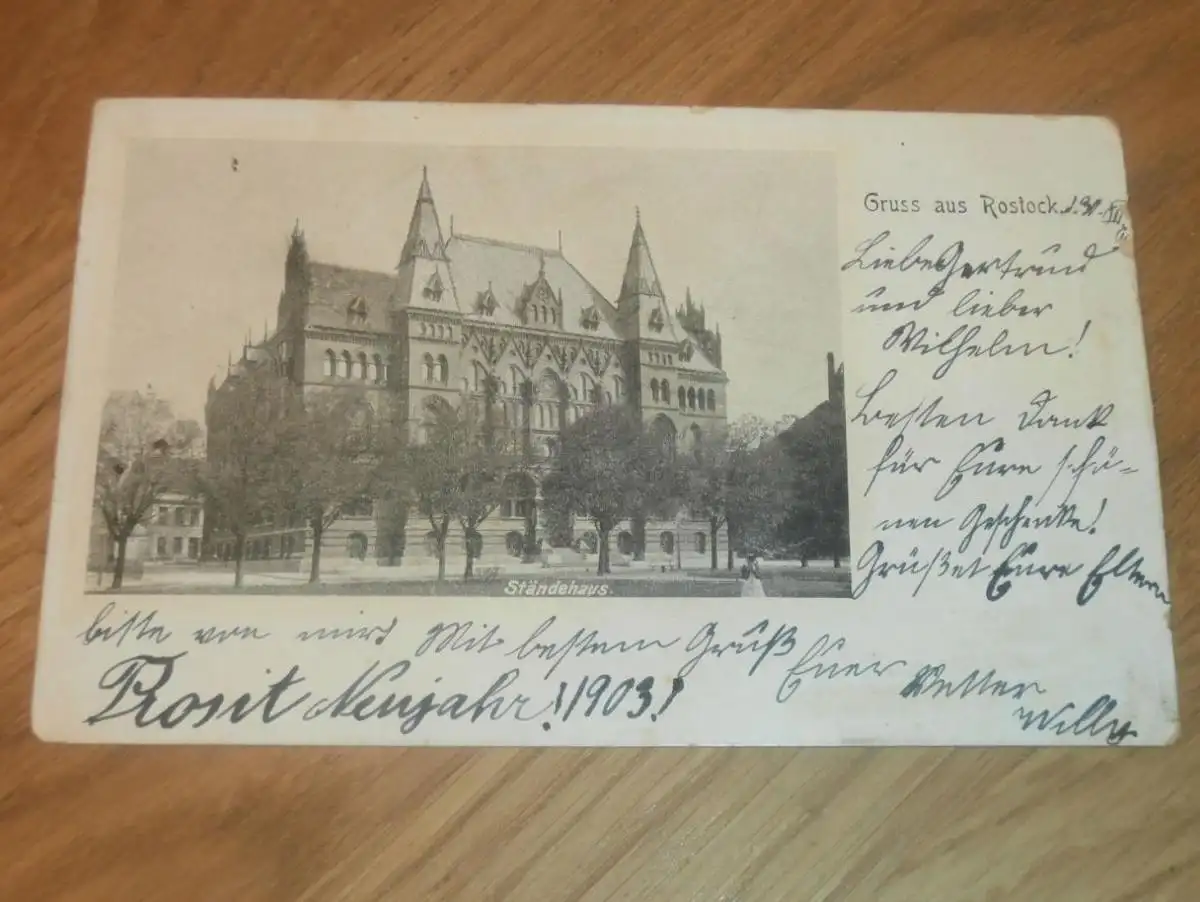 Gruss aus Rostock, d. 31. XII.
Liebe Gertrud
und lieber
Wilhelm!
Besten Dank
für Eure schö-
nen Geschenke!
Grüßet Eure Eltern
Ständehaus.
bitte von mir! Mit bestem Gruß Euer Vetter
Willy
Prosit Neujahr! 1903!